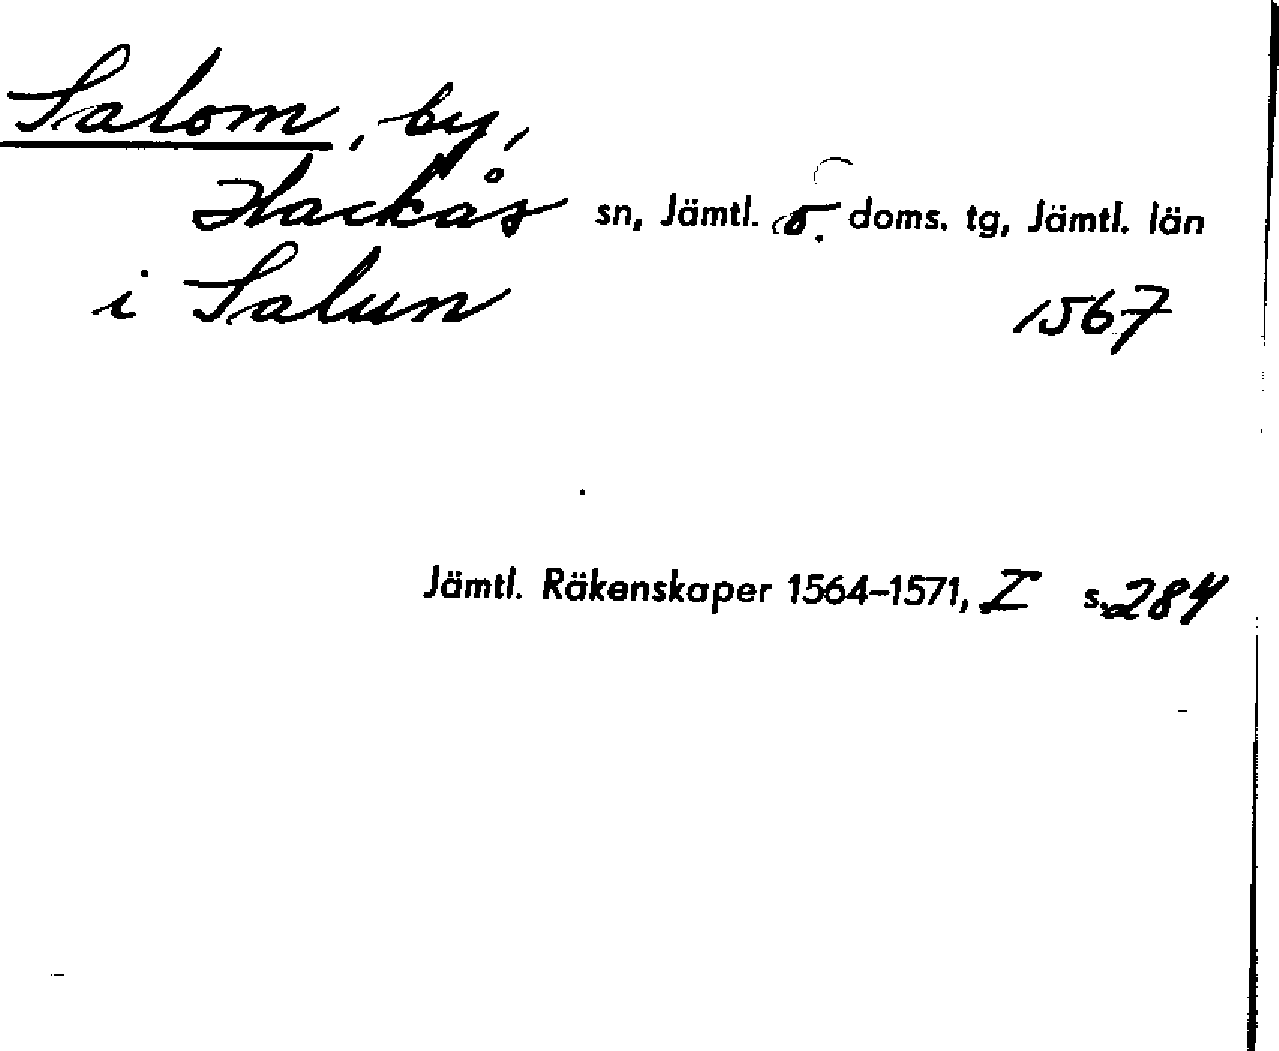 Salom, by,
Hackås sn, Jämtl. ö. doms. tg, Jämtl. län
i Salun 1567
Jämtl. Räkenskaper 1564–1571, I s. 284